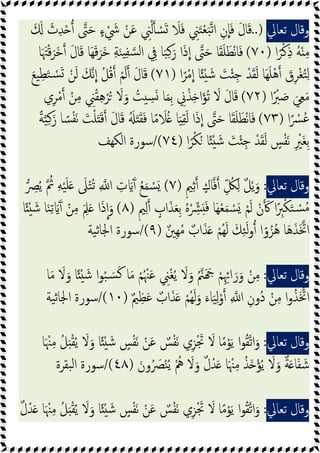 وقال تعالي (..قَالَ فَإِنِ اتَّبَعْتَنِي فَلَا تَسْأَلْنِي عَنْ شَيْءٍ حَتَّى أُحْدِثَ لَكَ
مِنْهُ ذِكْرًا (٧٠) فَانْطَلَقَا حَتَّى إِذَا رَكِبَا فِي السَّفِينَةِ خَرَقَهَا قَالَ أَخَرَقْتَهَا
لِتُغْرِقَ أَهْلَهَا لَقَدْ جِئْتَ شَيْئًا إِمْرًا (٧١) قَالَ أَلَمْ أَقُلْ إِنَّكَ لَنْ تَسْتَطِيعَ
مَعِيَ صَبْرًا (٧٢) قَالَ لَا تُؤَاخِذْنِي بِمَا نَسِيتُ وَلَا تُرْهِقْنِي مِنْ أَمْرِي
عُسْرًا (٧٣) فَانْطَلَقَا حَتَّى إِذَا لَقِيَا غُلَامًا فَقَتَلَهُ قَالَ أَقَتَلْتَ نَفْسًا زَكِيَّةً
بِغَيْرِ نَفْسٍ لَقَدْ جِئْتَ شَيْئًا نُكْرًا (٧٤)/سورة الكهف
وقال تعالي: وَيْلٌ لِكُلِّ أَفَّاكٍ أَثِيمٍ (٧) يَسْمَعُ آيَاتِ اللَّهِ تُتْلَى عَلَيْهِ ثُمَّ يُصِرُّ
مُسْتَكْبِرًا كَأَنْ لَمْ يَسْمَعْهَا فَبَشِّرْهُ بِعَذَابٍ أَلِيمٍ (٨) وَإِذَا عَلِمَ مِنْ آيَاتِنَا شَيْئًا
اتَّخَذَهَا هُزُوًا أُولَئِكَ لَهُمْ عَذَابٌ مُهِينٌ (٩)/سورة الجاثية
وقال تعالي: مِنْ وَرَائِهِمْ جَهَنَّمُ وَلَا يُغْنِي عَنْهُمْ مَا كَسَبُوا شَيْئًا وَلَا مَا
اتَّخَذُوا مِنْ دُونِ اللَّهِ أَوْلِيَاءَ وَلَهُمْ عَذَابٌ عَظِيمٌ (١٠)/سورة الجاثية
وقال تعالي: وَاتَّقُوا يَوْمًا لَا تَجْزِي نَفْسٌ عَنْ نَفْسٍ شَيْئًا وَلَا يُقْبَلُ مِنْهَا
شَفَاعَةٌ وَلَا يُؤْخَذُ مِنْهَا عَدْلٌ وَلَا هُمْ يُنْصَرُونَ (٤٨)/سورة البقرة
وقال تعالي: وَاتَّقُوا يَوْمًا لَا تَجْزِي نَفْسٌ عَنْ نَفْسٍ شَيْئًا وَلَا يُقْبَلُ مِنْهَا عَدْلٌ